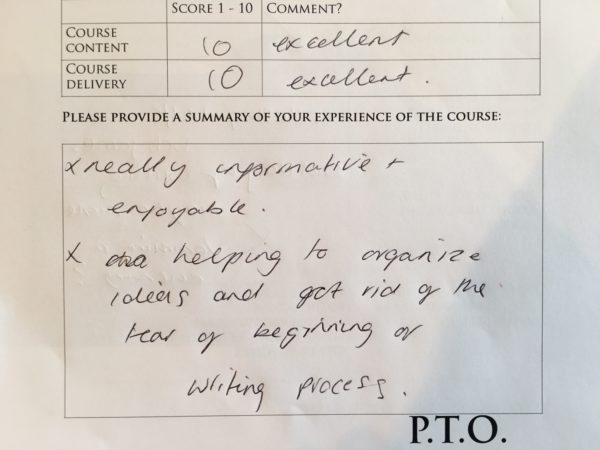 SCORE 1 - 10 COMMENT?
COURSE CONTENT 10 excellent
COURSE DELIVERY 10 excellent.
PLEASE PROVIDE A SUMMARY OF YOUR EXPERIENCE OF THE COURSE:
x really informative +
enjoyable.
x helping to organize
ideas and get rid of the
fear of beginning of
writing process.
P.T.O.